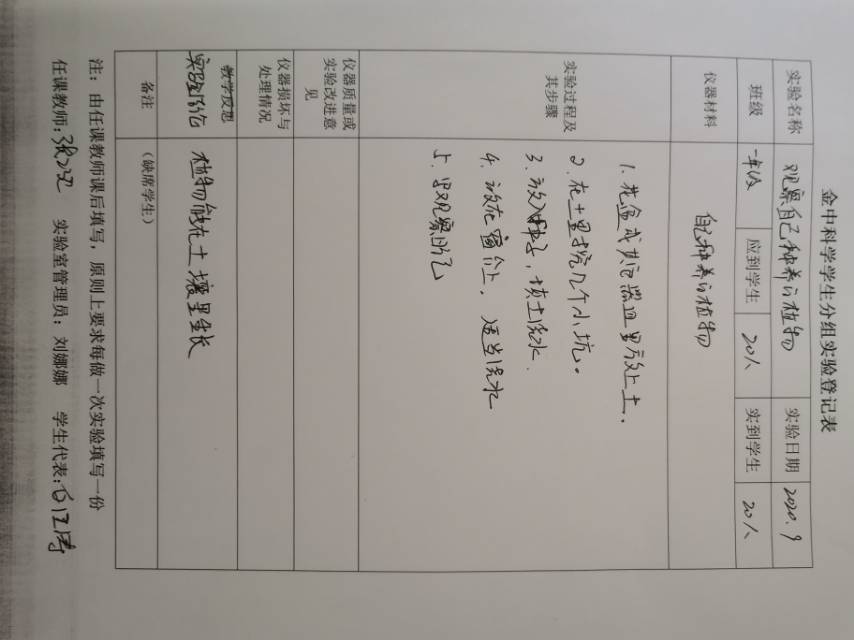 金中科学学生分组实验登记表
实验名称 观察自己种养的植物 实验日期 2020.9
班级 一年级 应到学生 20人 实到学生 20人
仪器材料 自己种养的植物
实验过程及其步骤
1. 花盆或其它器皿里放上土.
2. 在土里挖几个小坑。
3. 放入种子,填土浇水.
4. 放在窗台上,适当浇水
5. 写观察日记
仪器质量或实验改进意见
仪器损坏与处理情况
教学反思
实验结论 植物能在土壤里生长
备注 (缺席学生)
注:由任课教师课后填写,原则上要求每做一次实验填写一份
任课教师: 实验室管理员:刘娜娜 学生代表: